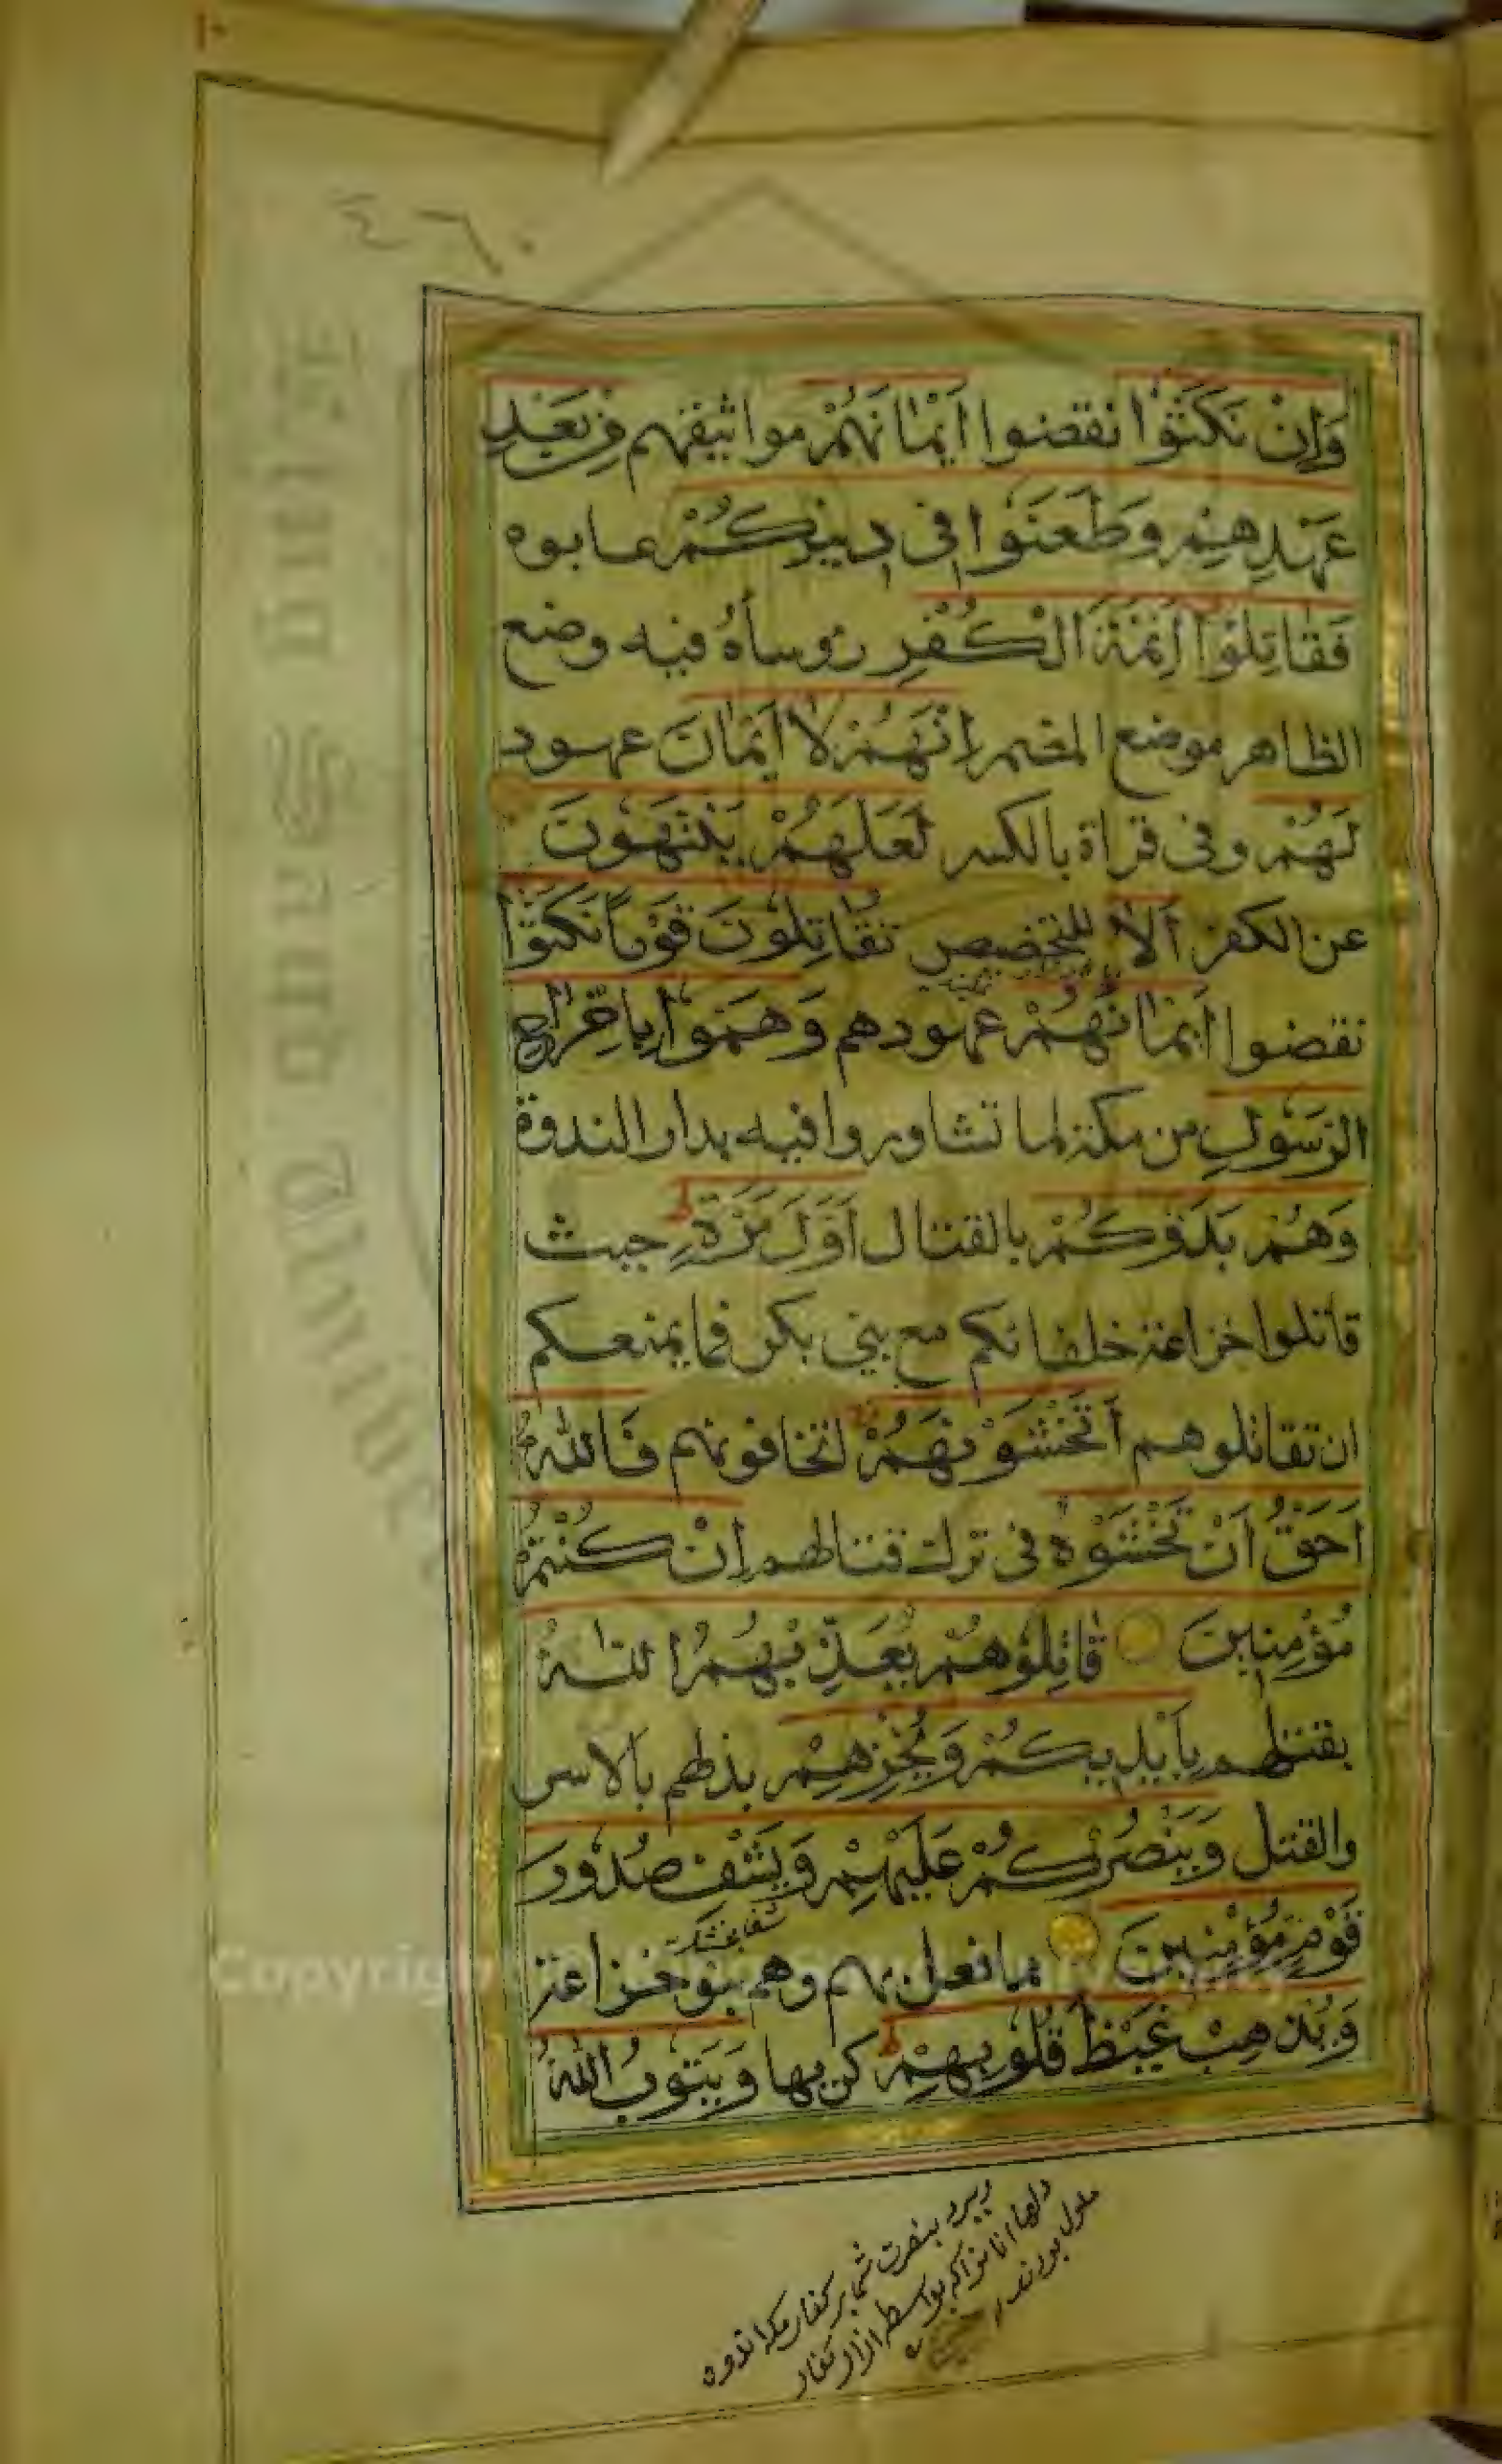 ٤٦٠
وَاِنْ نَكَثُوْا نقضوا اَيْمَانَهُمْ مواثيقهم مِنْ بَعْدِ
عَهْدِهِمْ وَطَعَنُوا فِى دِينِكُمْ عابوه
فَقَاتِلُوْا اَئِمَّةَ الْكُفْرِ رؤساءه فيه وضع
الظاهر موضع المضمر اِنَّهُمْ لَا اَيْمَانَ عهود
لَهُمْ وفى قراة بالكسر لَعَلَّهُمْ يَنْتَهُونَ
عن الكفر اَلَا للتحضيض تُقَاتِلُونَ قَوْمًا نَكَثُوْا
نقضوا اَيْمَانَهُمْ عهودهم وَهَمُّوا بِاِخْرَاجِ
الرَّسُولِ من مكة لما تشاوروا فيه بدار الندوة
وَهُمْ بَدَؤُكُمْ بالقتال اَوَّلَ مَرَّةٍ حيث
قاتلوا خزاعة حلفائكم مع بنى بكر فما يمنعكم
ان تقاتلوهم اَتَخْشَوْنَهُمْ اتخافونهم فَاللّٰهُ
اَحَقُّ اَنْ تَخْشَوْهُ فى ترك قتالهم اِنْ كُنْتُمْ
مُؤْمِنِينَ قَاتِلُوهُمْ يُعَذِّبْهُمُ اللّٰهُ
بقتلهم بِاَيْدِيكُمْ وَيُخْزِهِمْ بذلهم بالاسر
والقتل وَيَنْصُرْكُمْ عَلَيْهِمْ وَيَشْفِ صُدُورَ
قَوْمٍ مُؤْمِنِينَ بما فعل بهم وهم بنو خزاعة
وَيُذْهِبْ غَيْظَ قُلُوبِهِمْ كربها وَيَتُوبُ اللّٰهُ
وببرد بنصرت شما بر كفار مكه اندوه
دلها انانرا كه بواسطه ازار كفار
ملول بودند